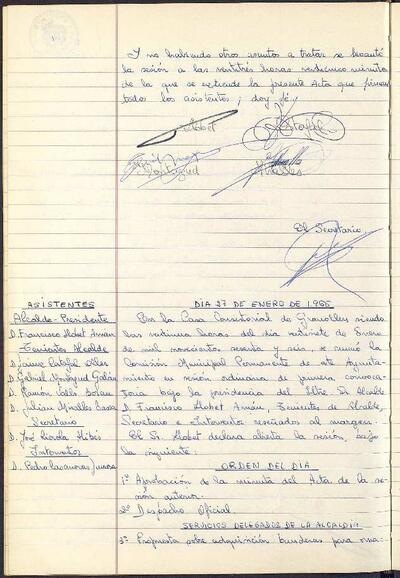 Y no habiendo otros asuntos a tratar se levantó
la sesión a las veintitrés horas veinticinco minutos
de la que se extiende la presente Acta que firman
todos los asistentes, doy fé
El Secretario,
ASISTENTES
Alcalde-Presidente
D. Francisco Llobet Arnán
Tenientes Alcalde
D. Jaime
D. Gabriel
D. Ramon Valls
D. Julian Viñalls
Secretario
D. José
Interventor
D. Pedro
DIA 27 DE ENERO DE 1966
En la Casa Consistorial de Granollers siendo
las veintiuna horas del dia veintisiete de Enero
de mil novecientos sesenta y seis, se reunió la
Comisión Municipal Permanente de este Ayunta-
miento en sesión ordinaria de primera convoca-
toria bajo la presidencia del Iltre. Sr. Alcalde
D. Francisco Llobet Arnán, Tenientes de Alcalde,
Secretario e Interventor reseñados al margen.
El Sr. Llobet declara abierta la sesión, bajo
la siguiente
ORDEN DEL DIA
1º Aprobación de la minuta del Acta de la se-
sión anterior.
2º Despacho Oficial
SERVICIOS DELEGADOS DE LA ALCALDIA
3º Propuesta sobre adquisición banderas para